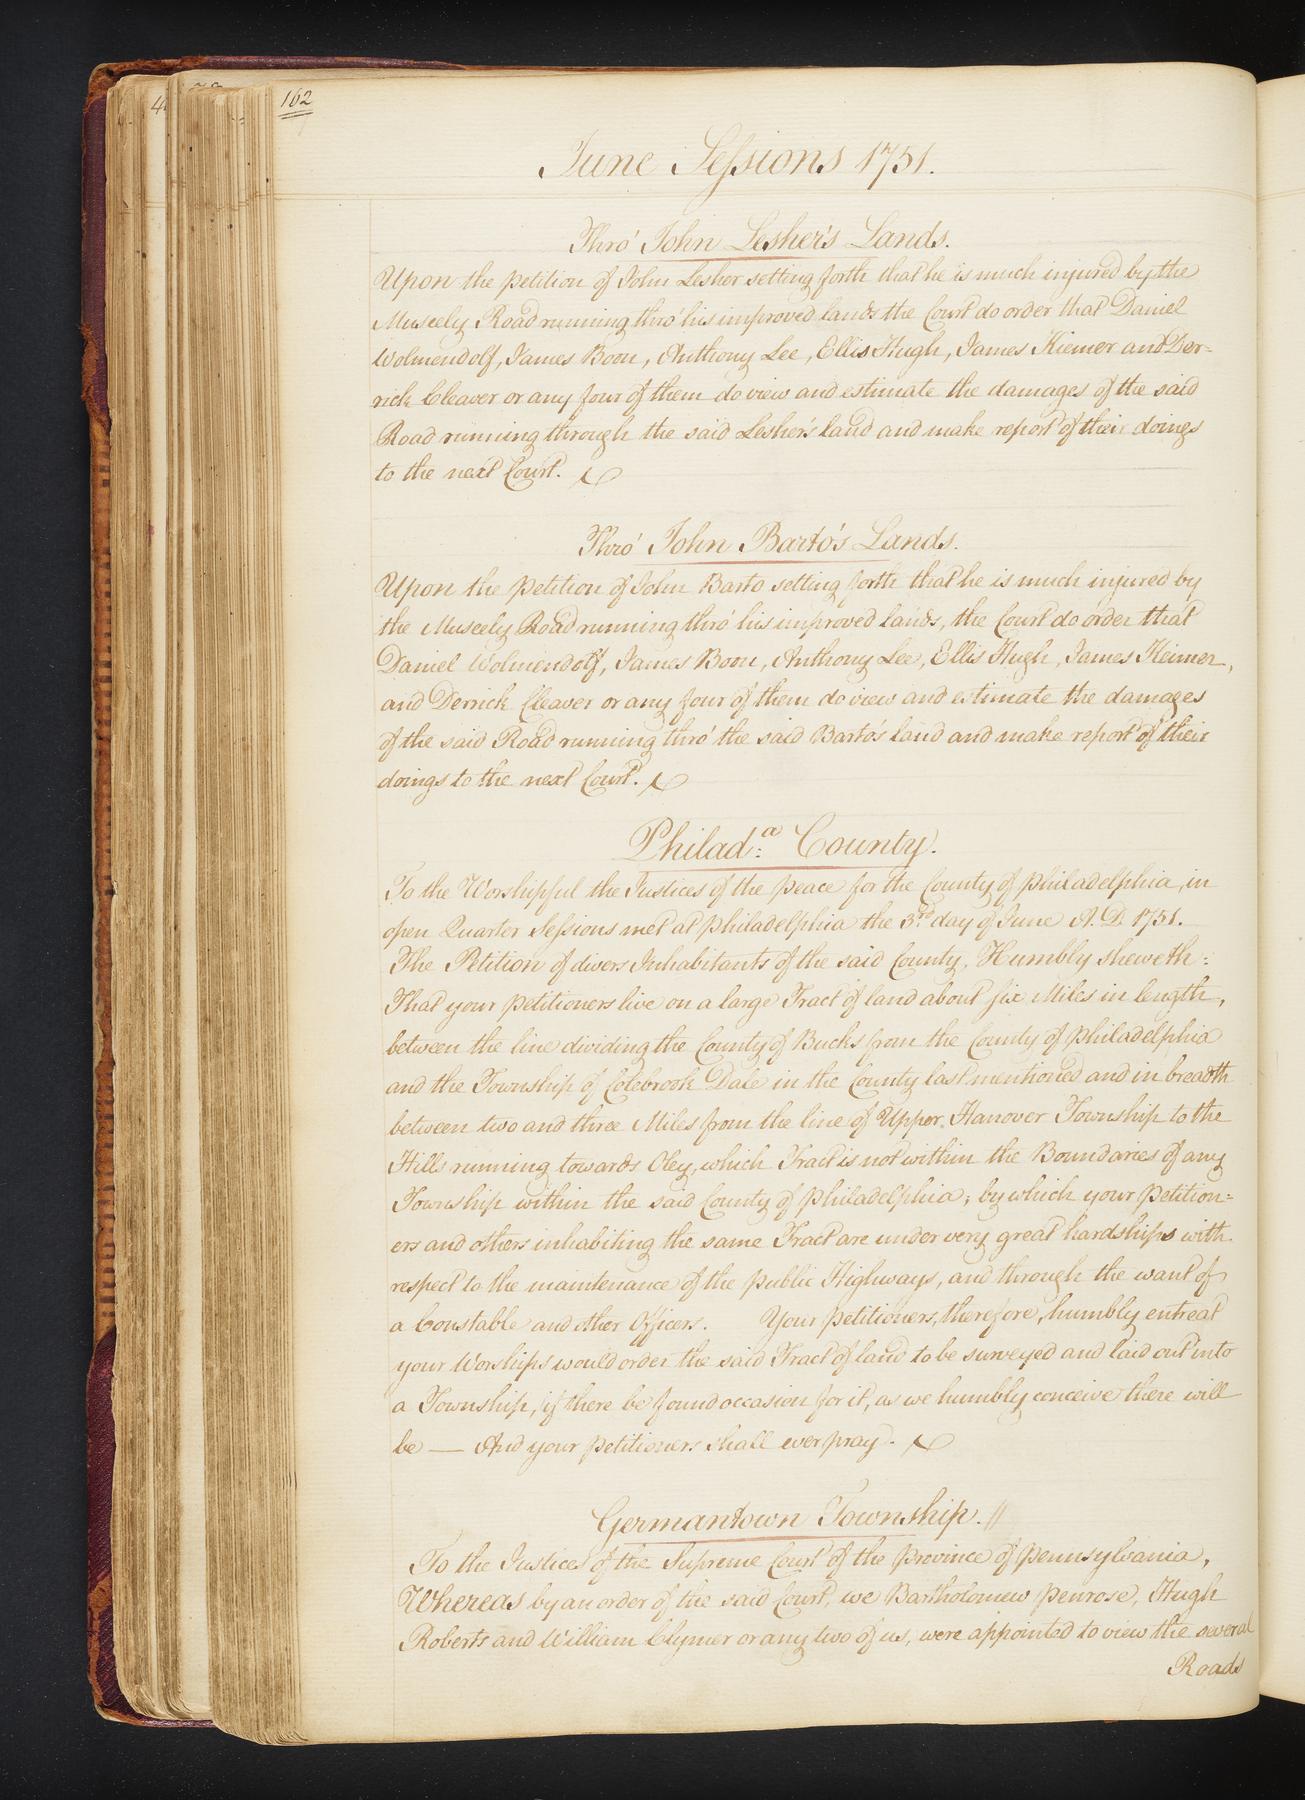 162
June Sessions 1751.
Thro' John Lesher's Lands.
Upon the petition of John Lesher setting forth that he is much injured by the
Museely Road running thro' his improved lands the Court do order that Daniel
Wolmendolf, James Boon, Anthony Lee, Ellis Hugh, James Kiemer and Der=
rick Cleaver or any four of them do view and estimate the damages of the said
Road running through the said Lesher's land and make report of their doings
to the next Court.
Thro' John Barto's Lands.
Upon the petition of John Barto setting forth that he is much injured by
the Museely Road running thro' his improved lands, the Court do order that
Daniel Wolmendolf, James Boon, Anthony Lee, Ellis Hugh, James Keimer,
and Derrick Cleaver or any four of them do view and estimate the damages
of the said Road running thro' the said Barto's land and make report of their
doings to the next Court.
Philad:a County.
To the Worshipful the Justices of the peace for the County of philadelphia, in
open Quarter Sessions met at philadelphia the 3rd day of June A.D. 1751.
The Petition of divers Inhabitants of the said County, Humbly sheweth:
That your petitioners live on a large Tract of land about six Miles in length,
between the line dividing the County of Bucks from the County of philadelphia
and the Township of Colebrook Dale in the County last mentioned and in breadth
between two and three Miles from the line of Upper Hanover Township to the
Hills running towards Oley, which Tract is not within the Boundaries of any
Township within the said County of philadelphia; by which your Petition=
ers and others inhabiting the same Tract are under very great hardships with
respect to the maintenance of the public Highways, and through the want of
a Constable and other Officers. Your petitioners, therefore, humbly entreat
your Worships would order the said Tract of land to be surveyed and laid out into
a Township, if there be found occasion for it, as we humbly conceive there will
be — And your petitioners shall ever pray.
Germantown Township. //
To the Justices of the Supreme Court of the province of pennsylvania,
Whereas by an order of the said Court, we Bartholomew penrose, Hugh
Roberts and William Clymer or any two of us, were appointed to view the several
Roads